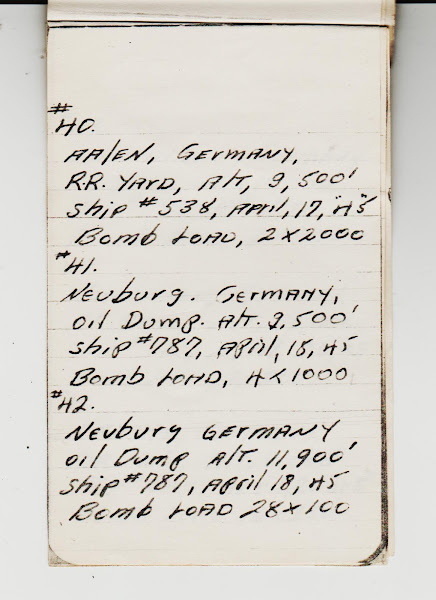 #
40.
AAlEN, GERMANY,
R.R. YARD, Alt, 9,500'
Ship #538, April, 17, "45
Bomb LOAD, 2x2000
#41.
Neuburg. GERMANY,
Oil Dump. Alt. 9,500'
Ship #787, April, 18, 45
Bomb LOAD, 4x1000
#42.
Neuburg GERMANY
Oil Dump Alt. 11,900'
Ship #787, April 18, 45
Bomb LOAD 28x100